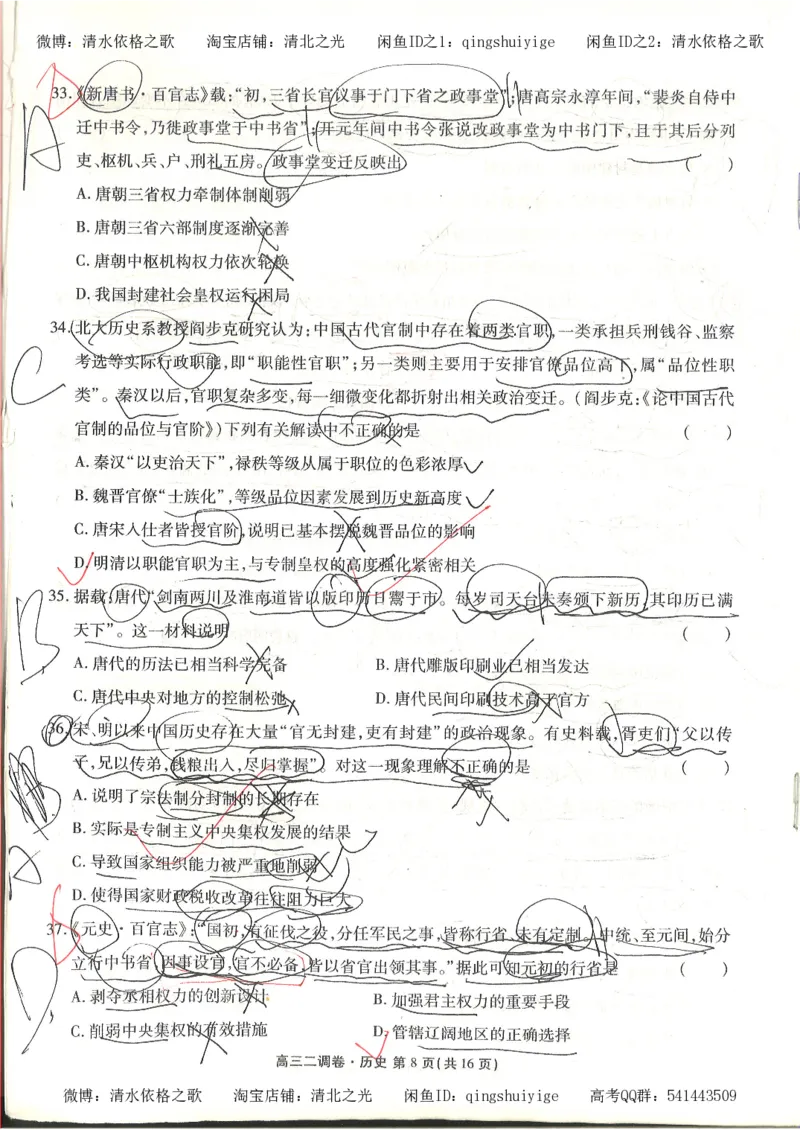 微博：清水依格之歌 淘宝店铺：清北之光 闲鱼ID之1：qingshuiyige 闲鱼ID之2：清水依格之歌
33.《新唐书·百官志》载：“初，三省长官议事于门下省之政事堂”；唐高宗永淳年间，“裴炎自侍中
迁中书令，乃徙政事堂于中书省”；开元年间中书令张说改政事堂为中书门下，且于其后分列
吏、枢机、兵、户、刑礼五房。政事堂变迁反映出 （ ）
A
A. 唐朝三省权力牵制体制削弱
B. 唐朝三省六部制度逐渐完善
C. 唐朝中枢机构权力依次轮换
D. 我国封建社会皇权运行困局
34. 北大历史系教授阎步克研究认为：中国古代官制中存在着两类官职，一类承担兵刑钱谷、监察
考选等实际行政职能，即“职能性官职”；另一类则主要用于安排官僚品位高下，属“品位性职
C
类”。秦汉以后，官职复杂多变，每一细微变化都折射出相关政治变迁。（阎步克：《论中国古代
官制的品位与官阶》）下列有关解读中不正确的是 （ ）
A. 秦汉“以吏治天下”，禄秩等级从属于职位的色彩浓厚
B. 魏晋官僚“士族化”，等级品位因素发展到历史新高度
C. 唐宋入仕者皆授官阶，说明已基本摆脱魏晋品位的影响
D. 明清以职能官职为主，与专制皇权的高度强化紧密相关
35. 据载：唐代“剑南两川及淮南道皆以版印历日鬻于市。每岁司天台未奏颁下新历，其印历已满
天下”。这一材料说明 （ ）
B
A. 唐代的历法已相当科学完备 B. 唐代雕版印刷业已相当发达
C. 唐代中央对地方的控制松弛 D. 唐代民间印刷技术高于官方
36. 宋、明以来中国历史存在大量“官无封建，吏有封建”的政治现象。有史料载，胥吏们“父以传
子，兄以传弟，钱粮出入，尽归掌握”。对这一现象理解不正确的是 （ ）
A. 说明了宗法制分封制的长期存在
B. 实际是专制主义中央集权发展的结果
A
C. 导致国家组织能力被严重地削弱
D. 使得国家财政税收改革往往阻力巨大
37.《元史·百官志》：“国初，有征伐之役，分任军民之事，皆称行省，未有定制。中统、至元间，始分
立行中书省，因事设官，官不必备，皆以省官出领其事。”据此可知元初的行省是 （ ）
D
A. 剥夺丞相权力的创新设计 B. 加强君主权力的重要手段
C. 削弱中央集权的有效措施 D. 管辖辽阔地区的正确选择
高三二调卷·历史 第 8 页（共 16 页）
微博：清水依格之歌 淘宝店铺：清北之光 闲鱼ID：qingshuiyige 高考QQ群：541443509